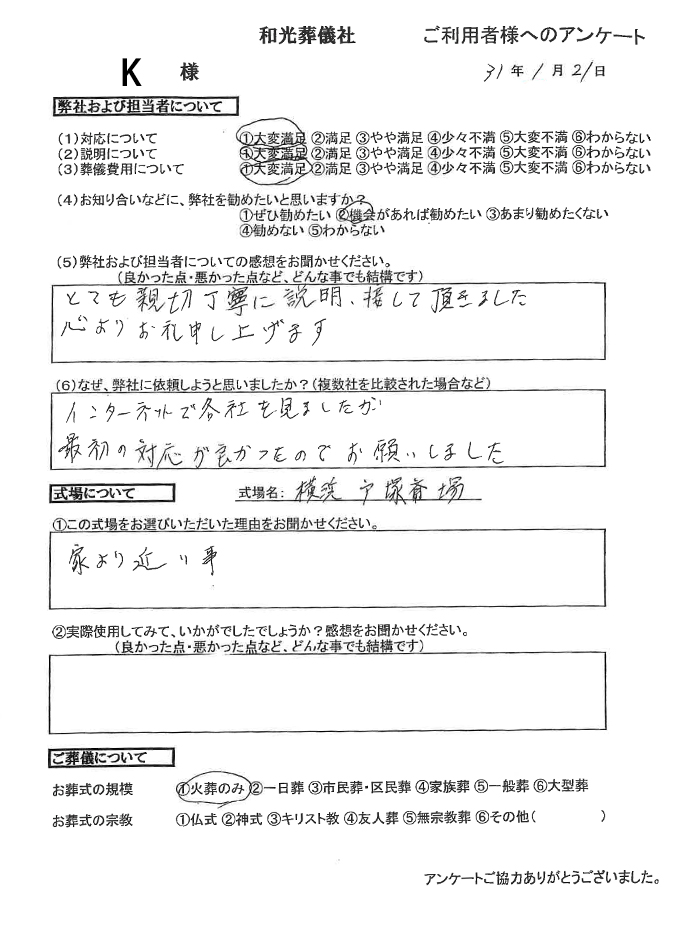 和光葬儀社 ご利用者様へのアンケート
K 様 31年1月21日
弊社および担当者について
(1)対応について ①大変満足 ②満足 ③やや満足 ④少々不満 ⑤大変不満 ⑥わからない
(2)説明について ①大変満足 ②満足 ③やや満足 ④少々不満 ⑤大変不満 ⑥わからない
(3)葬儀費用について ①大変満足 ②満足 ③やや満足 ④少々不満 ⑤大変不満 ⑥わからない
(4)お知り合いなどに、弊社を勧めたいと思いますか?
①ぜひ勧めたい ②機会があれば勧めたい ③あまり勧めたくない
④勧めない ⑤わからない
(5)弊社および担当者についての感想をお聞かせください。
(良かった点・悪かった点など、どんな事でも結構です)
とても親切丁寧に説明、接して頂きました
心よりお礼申し上げます
(6)なぜ、弊社に依頼しようと思いましたか?(複数社を比較された場合など)
インターネットで各社を見ましたが
最初の対応が良かったのでお願いしました
式場について 式場名: 横浜戸塚斎場
①この式場をお選びいただいた理由をお聞かせください。
家より近い事
②実際使用してみて、いかがでしたでしょうか?感想をお聞かせください。
(良かった点・悪かった点など、どんな事でも結構です)
ご葬儀について
お葬式の規模 ①火葬のみ ②一日葬 ③市民葬・区民葬 ④家族葬 ⑤一般葬 ⑥大型葬
お葬式の宗教 ①仏式 ②神式 ③キリスト教 ④友人葬 ⑤無宗教葬 ⑥その他( )
アンケートご協力ありがとうございました。